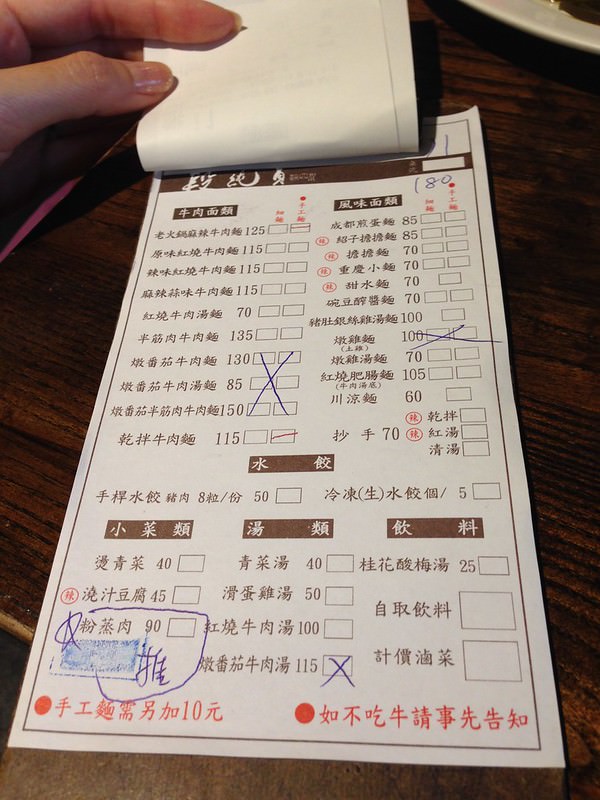 段純貞
180
牛肉麵類
細麵
手工麵
老火鍋麻辣牛肉麵 125
原味紅燒牛肉麵 115
辣味紅燒牛肉麵 115
麻辣蒜味牛肉麵 115
紅燒牛肉湯麵 70
半筋肉牛肉麵 135
燉番茄牛肉麵 130
燉番茄牛肉湯麵 85
燉番茄半筋肉牛肉麵 150
乾拌牛肉麵 115
風味麵類
細麵
手工麵
成都煎蛋麵 85
辣 紹子擔擔麵 85
辣 擔擔麵 70
辣 重慶小麵 70
辣 甜水麵 70
碗豆醡醬麵 70
豬肚銀絲雞湯麵 100
燉雞麵 100
(土雞)
燉雞湯麵 70
紅燒肥腸麵 105
(牛肉湯底)
川涼麵 60
抄手 70
辣 乾拌
辣 紅湯
清湯
水餃
手桿水餃 豬肉 8粒/份 50
冷凍(生)水餃個/ 5
小菜類
燙青菜 40
辣 澆汁豆腐 45
粉蒸肉 90
推
湯類
青菜湯 40
滑蛋雞湯 50
紅燒牛肉湯 100
燉番茄牛肉湯 115
飲料
桂花酸梅湯 25
自取飲料
計價滷菜
手工麵需另加10元
如不吃牛請事先告知